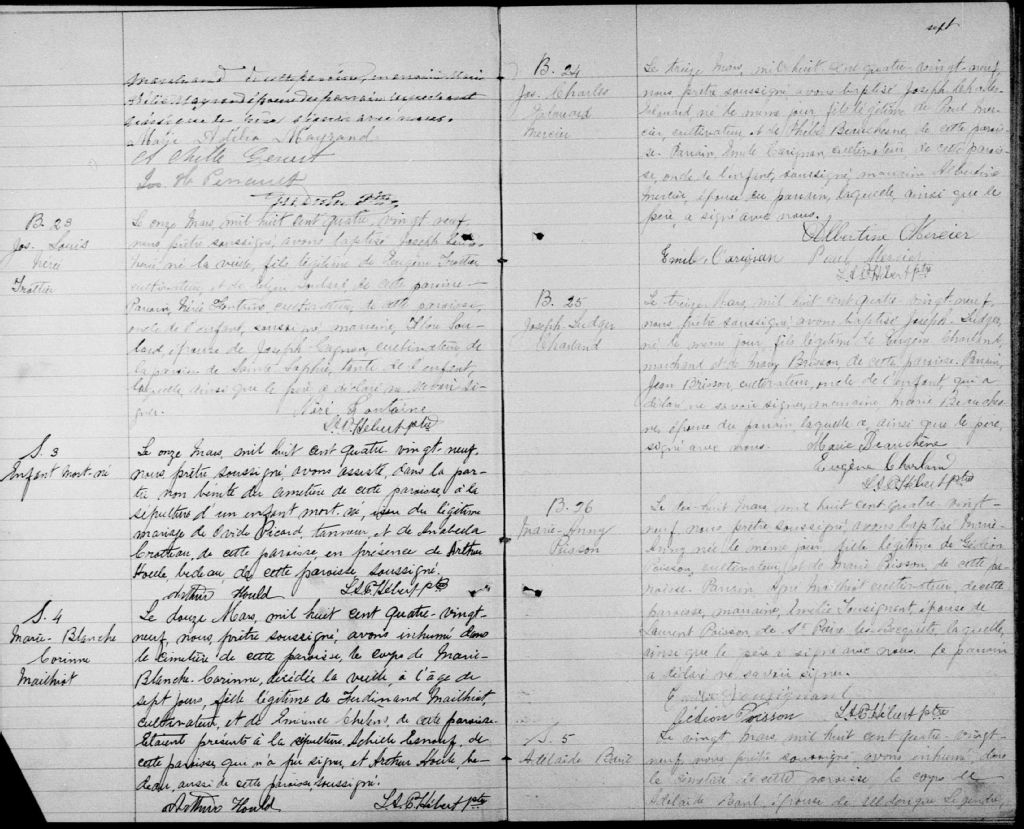 Marchand de cette paroisse, marraine Marie
Délia Mayrand épouse du parrain lesquels ont
Marie Adélia Mayrand
A Chille Genest
Jos H Perrault
B. 23
Jos. Louis
Néré
Trottier
Le onze Mars, mil huit cent quatre-vingt-neuf,
nous, prêtre soussigné, avons baptisé Joseph Louis
Néré né la veille, fils légitime de Eugène Trottier
cultivateur, et de Soulard de cette paroisse
Parrain Néré Fontaine, cultivateur, de cette paroisse,
oncle de l'enfant, soussigné, marraine, Sou-
lard, épouse de Joseph Gagnon, cultivateur de
la paroisse de Sainte Sophie, tante de l'enfant,
laquelle ainsi que le père a déclaré ne savoir si-
gner.
Néré Fontaine
L.A.P. Hébert ptre
S. 3
Enfant mort-né
Le onze Mars, mil huit cent quatre-vingt-neuf,
nous prêtre soussigné, avons assisté, dans la par-
tie non bénite du cimetière de cette paroisse, à la
sépulture d'un enfant mort-né, issu du légitime
mariage de David Picard, tanneur, et de Anabella
Croteau, de cette paroisse, en présence de Arthur
Houle, bedeau de cette paroisse, soussigné.
Arthur Hould L.A.P. Hébert ptre
S. 4
Marie-Blanche
Corinne
Mailhiot
Le douze Mars, mil huit cent quatre-vingt-
neuf, nous, prêtre soussigné, avons inhumé dans
le cimetière de cette paroisse, le corps de Marie-
Blanche-Corinne, décédée la veille à l'âge de
sept jours, fille légitime de Ferdinand Mailhiot,
cultivateur, et de Emérence de cette paroisse.
Etaient présents à la sépulture Achille de
cette paroisse, qui n'a pu signer, et Arthur Houle, be-
deau, aussi de cette paroisse, soussigné.
Arthur Hould L.A.P. Hébert ptre
sept
B. 24
Jos. Charles
Edouard
Mercier
Le treize Mars, mil huit cent quatre-vingt-neuf,
nous, prêtre soussigné avons baptisé Joseph Charles
Edouard né le même jour, fils légitime de Paul Mer-
cier, cultivateur, et de Phébé Beauchesne de cette parois-
se. Parrain, Emile Carignan, cultivateur de cette parois-
se, oncle de l'enfant, soussigné, marraine Albertine
Mercier, épouse du parrain, laquelle, ainsi que le
père, a signé avec nous.
Albertine Mercier
Emile Carignan Paul Mercier
L.A.P. Hébert ptre
B. 25
Joseph Ludger
Charland
Le treize Mars, mil huit cent quatre-vingt-neuf,
nous, prêtre soussigné avons baptisé Joseph Ludger,
né le même jour, fils légitime de Eugène Charland,
marchand et de Mary Brisson, de cette paroisse. Parrain,
Jean Brisson, cultivateur, oncle de l'enfant, qui a
déclaré ne savoir signer, marraine Marie Beauches-
ne, épouse du parrain laquelle a, ainsi que le père,
signé avec nous. Marie Beauchêne
Eugène Charland
L.A.P. Hébert ptre
B. 26
Marie-Anny
Poisson
Le dix-huit Mars, mil huit cent quatre-vingt-
neuf, nous prêtre soussigné avons baptisé Marie-
Anny née le même jour, fille légitime de Gédéon
Poisson, cultivateur, et de Marie Brisson, de cette pa-
roisse. Parrain, Mailhiot cultivateur, de cette
paroisse, marraine, Emélie Tousignant, épouse de
Laurent Poisson, de St Pierre les-Becquets, laquelle,
ainsi que le père a signé avec nous. Le parrain
a déclaré ne savoir signer.
Emélie Tousignant
Gédéon Poisson L.A.P. Hébert ptre
S. 5
Adélaïde Baril
Le vingt Mars mil huit cent quatre-vingt-
neuf, nous, prêtre soussigné, avons inhumé, dans
le cimetière de cette paroisse, le corps de
Adélaïde Baril, épouse de Legendre,